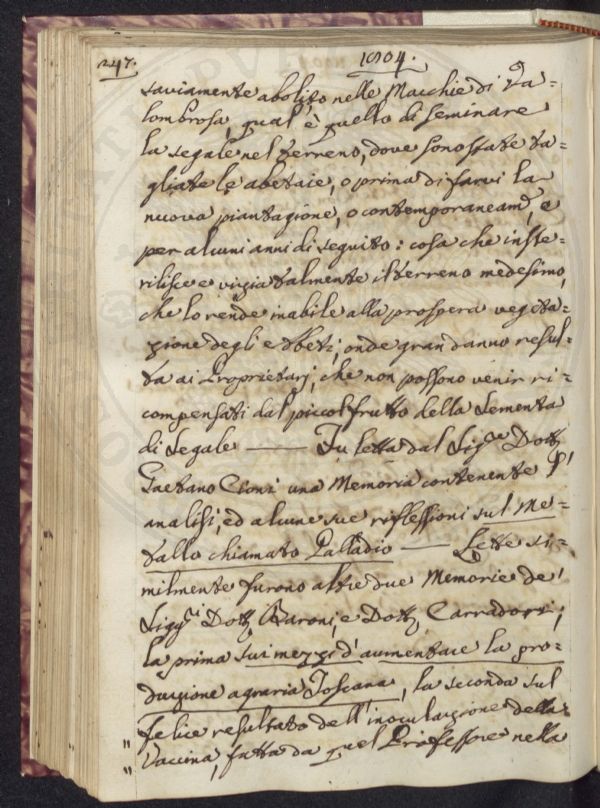 247. 1804.
saviamente abolito nelle Macchie di Va=
lombrosa, qual' è quello di seminare
la segale nel terreno, dove sono state ta=
gliate le abetaie, o prima di farvi la
nuova piantagione, o contemporaneam.e, e
per alcuni anni di seguito: cosa che inste=
rilisce e vizia talmente il terreno medesimo,
che lo rende inabile alla prospera vegeta=
zione degli Abeti; onde gran danno resul=
ta ai Proprietarj, che non possono venir ri=
compensati dal piccol frutto della Sementa
di Segale —— Fu letta dal Sig.re Dott.
Gaetano Cioni una Memoria contenente l'
analisi, ed alcune sue riflessioni sul Me=
tallo chiamato Palladio —— Lette si=
milmente furono altre due Memorie de'
Sigg.ri Dott. Baroni, e Dott. Carradori;
la prima sui mezzi d'aumentare la pro=
duzione agraria Toscana, la seconda sul
felice resultato dell'inoculazione della
" Vaccina, fatta da quel Professore nella
"